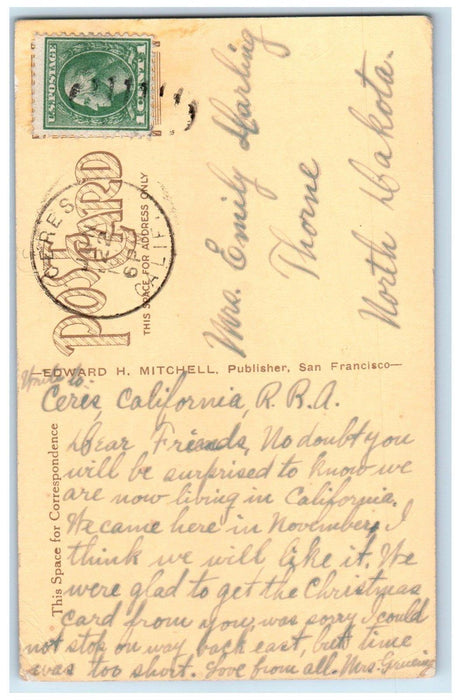 U.S. POSTAGE
1 CENT 1
CERES
CALIF.
POST CARD
THIS SPACE FOR ADDRESS ONLY
Mrs. Emily Harling
Thorne
North Dakota.
—EDWARD H. MITCHELL, Publisher, San Francisco—
This Space for Correspondence
Write to:
Ceres, California, R.R.A.
Dear Friends, No doubt you
will be surprised to know we
are now living in California.
We came here in November. I
think we will like it. We
were glad to get the Christmas
card from you, was sorry I could
not stop on way back east, but time
was too short. Love from all. Mrs.